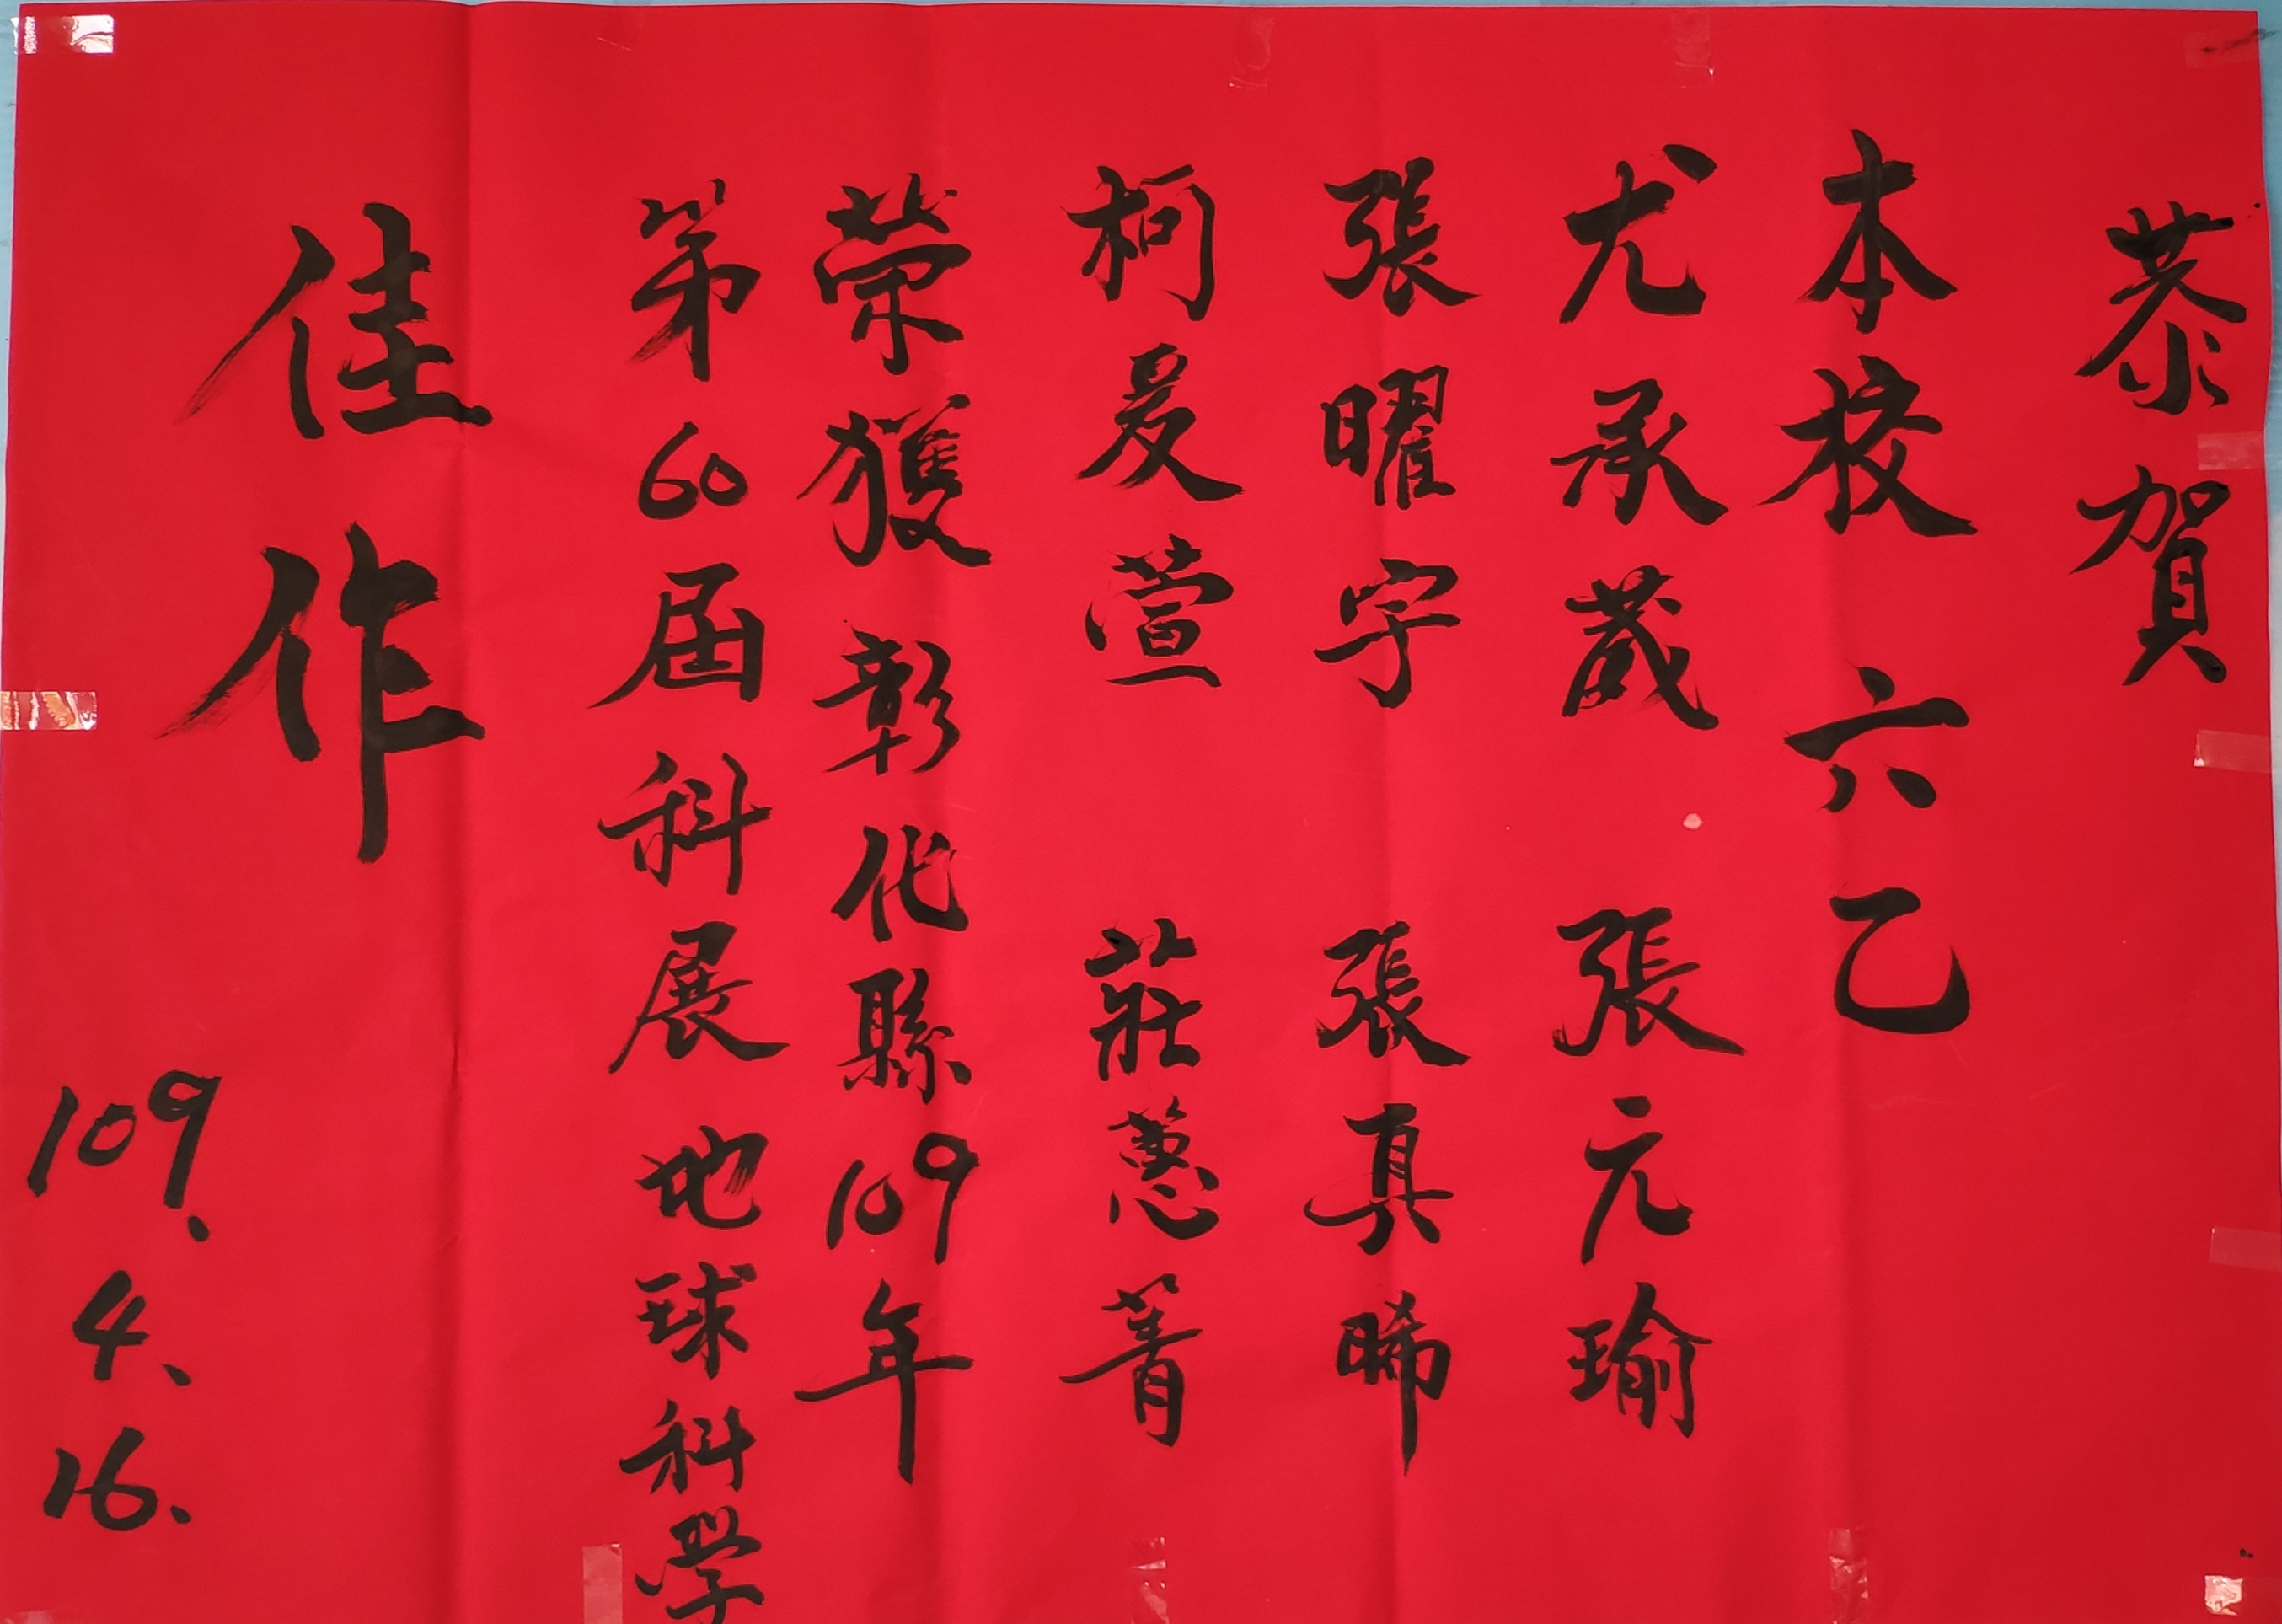 恭賀
本校 六乙
尤承葳 張元瑜
張曜宇 張真晞
柯爰萱 莊蕙菁
榮獲彰化縣109年
第60屆科展 地球科学
佳作
109.4.16.